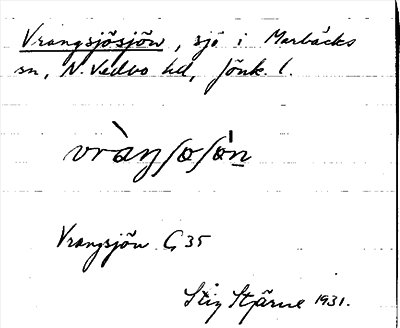 Vrangsjösjön, sjö i Marbäcks
sn, N. Vedbo hd, Jönk. l.
vràŋʃøʃø̀n
Vrangsjön G 35
Stig Stjärne 1931.